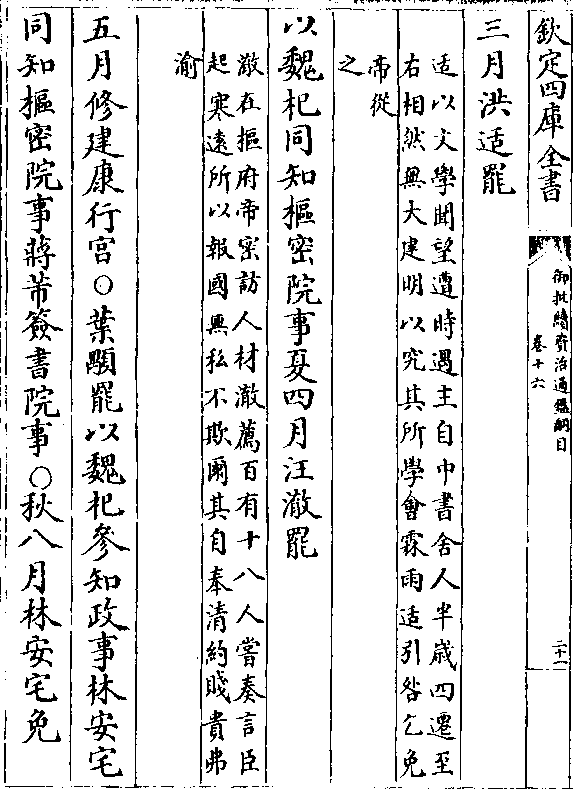 欽定四庫全書
御批續資治通鑑綱目
卷十六
二十一
三月洪适罷
适以文學聞望遭時遇主自中書舍人半歲四遷至
右相然無大建明以究其所學會霖雨适引咎乞免
帝從
之
以魏杞同知樞密院事夏四月汪澈罷
澈在樞府帝密訪人材澈薦百有十八人嘗奏言臣
起寒遠所以報國無私不欺爾其自奉清約賤貴弗
渝
五月修建康行宮○葉顒罷以魏杞參知政事林安宅
同知樞密院事蔣芾簽書院事○秋八月林安宅免